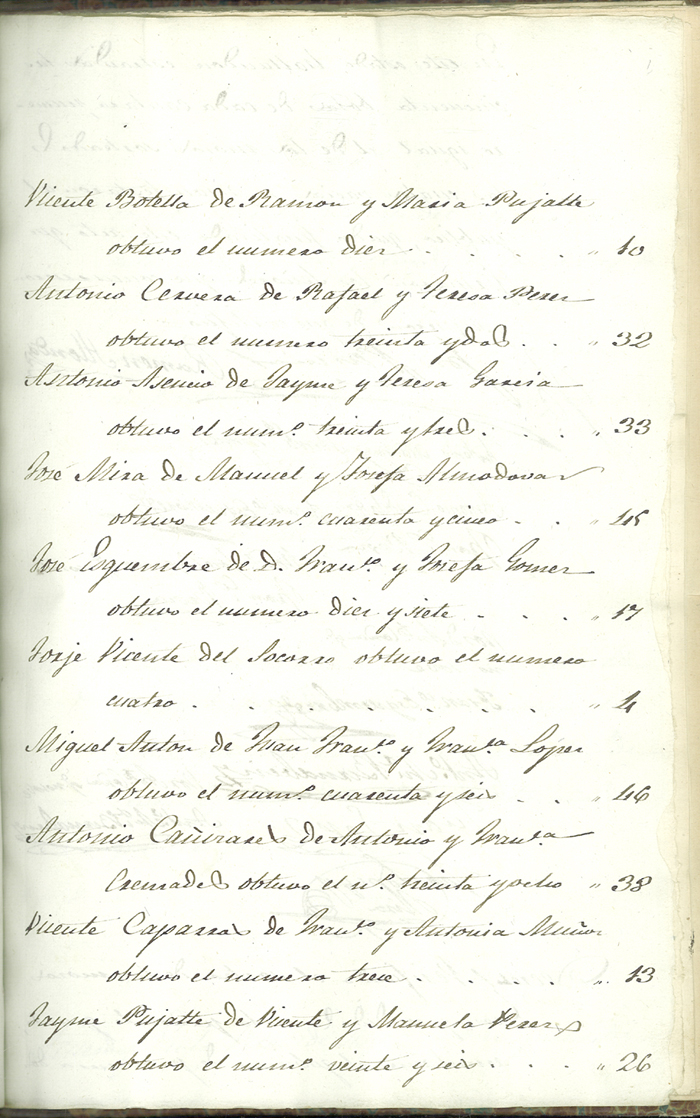 Vicente Botella de Ramon y Maria Pujalte
obtuvo el numero diez . . . . " 10
Antonio Cervera de Rafael y Teresa Perez
obtuvo el numero treinta y dos . . " 32
Antonio Asencio de Jayme y Teresa Garcia
obtuvo el num.º treinta y tres . . . " 33
José Mira de Manuel y Josefa Almodovar
obtuvo el num.º cuarenta y cinco . . " 45
José Esquembre de D. Fran.co y Josefa Gomez
obtuvo el numero diez y siete . . . " 17
Jorje Vicente del Socorro obtuvo el numero
cuatro . . . . . . . " 4
Miguel Anton de Juan Fran.co y Fran.ca Lopez
obtuvo el num.º cuarenta y seis . . " 46
Antonio Cañizares de Antonio y Fran.ca
Cremades obtuvo el n.º treinta y ocho " 38
Vicente Caparros de Fran.co y Antonia Muñoz
obtuvo el numero trece . . . . " 13
Jayme Pujalte de Vicente y Manuela Perez
obtuvo el num.º veinte y seis . . . " 26